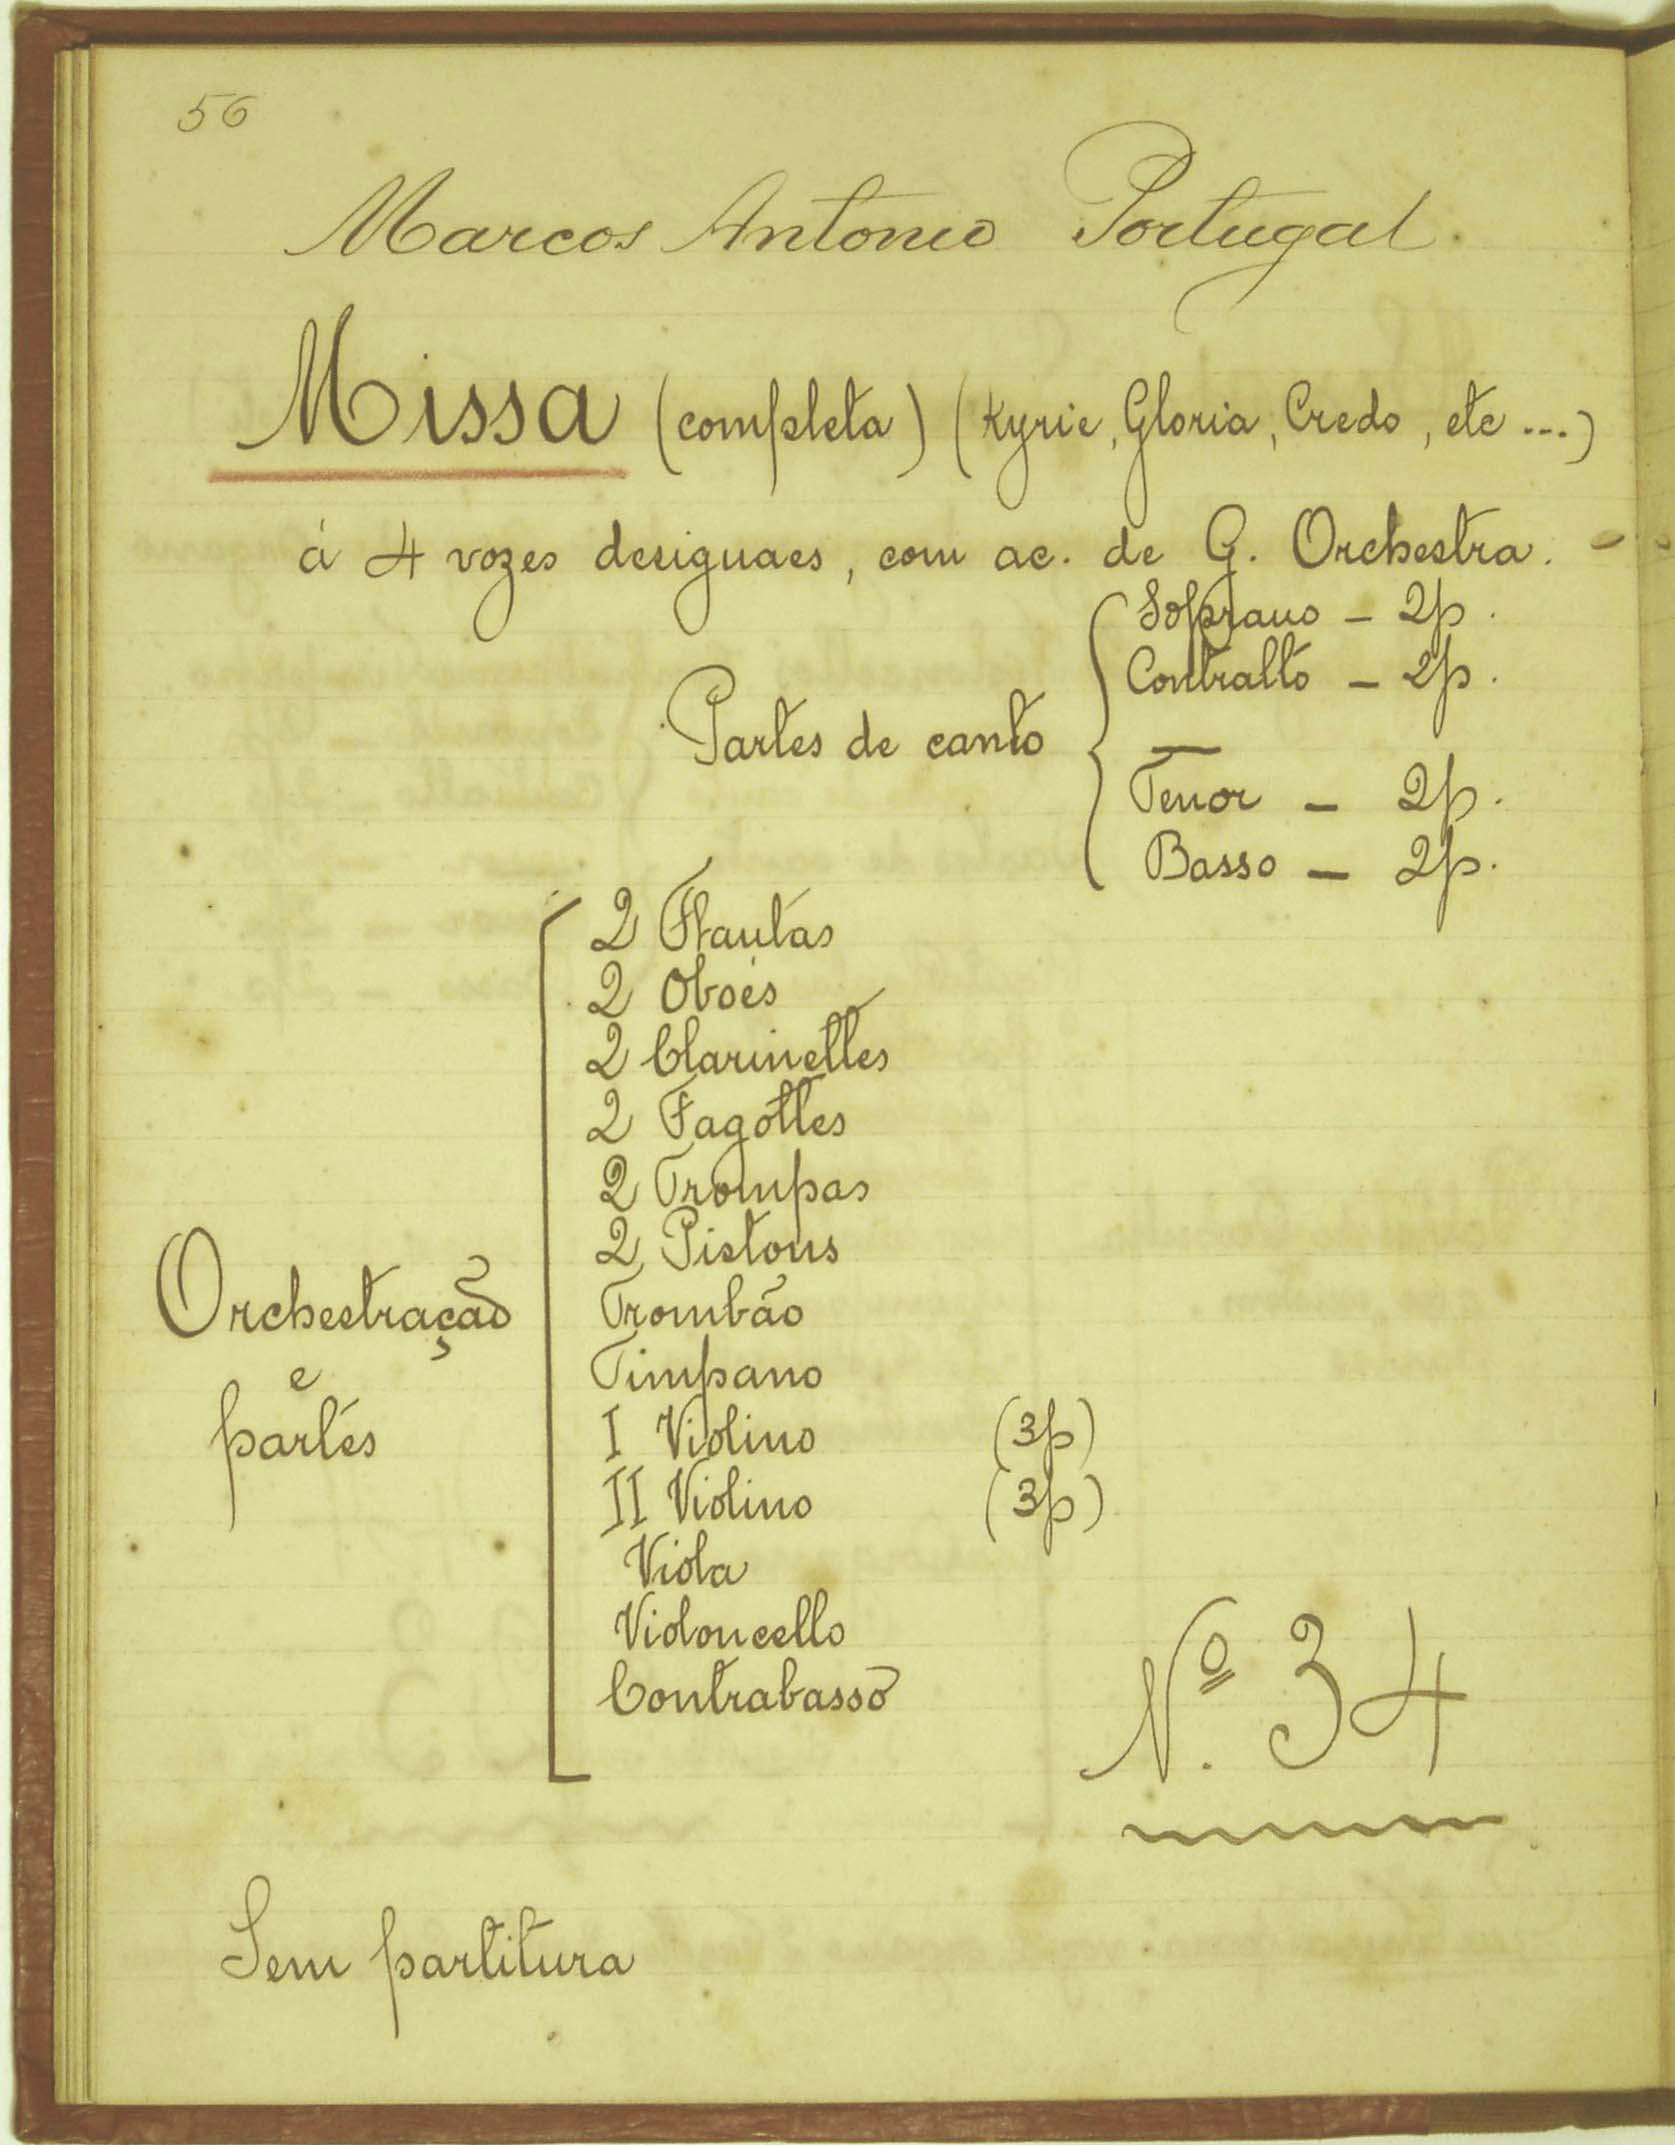 56
Marcos Antonio Portugal.
Missa (completa) (Kyrie, Gloria, Credo, etc ...)
á 4 vozes desiguaes, com ac. de G. Orchestra.
Partes de canto
Soprano - 2p.
Contralto - 2p.
Tenor - 2p.
Basso - 2p.
Orchestração
e
partes
2 Flautas
2 Oboés
2 Clarinettes
2 Fagottes
2 Trompas
2 Pistons
Trombão
Timpano
I Violino (3p)
II Violino (3p)
Viola
Violoncello
Contrabasso
Nº. 34
Sem partitura